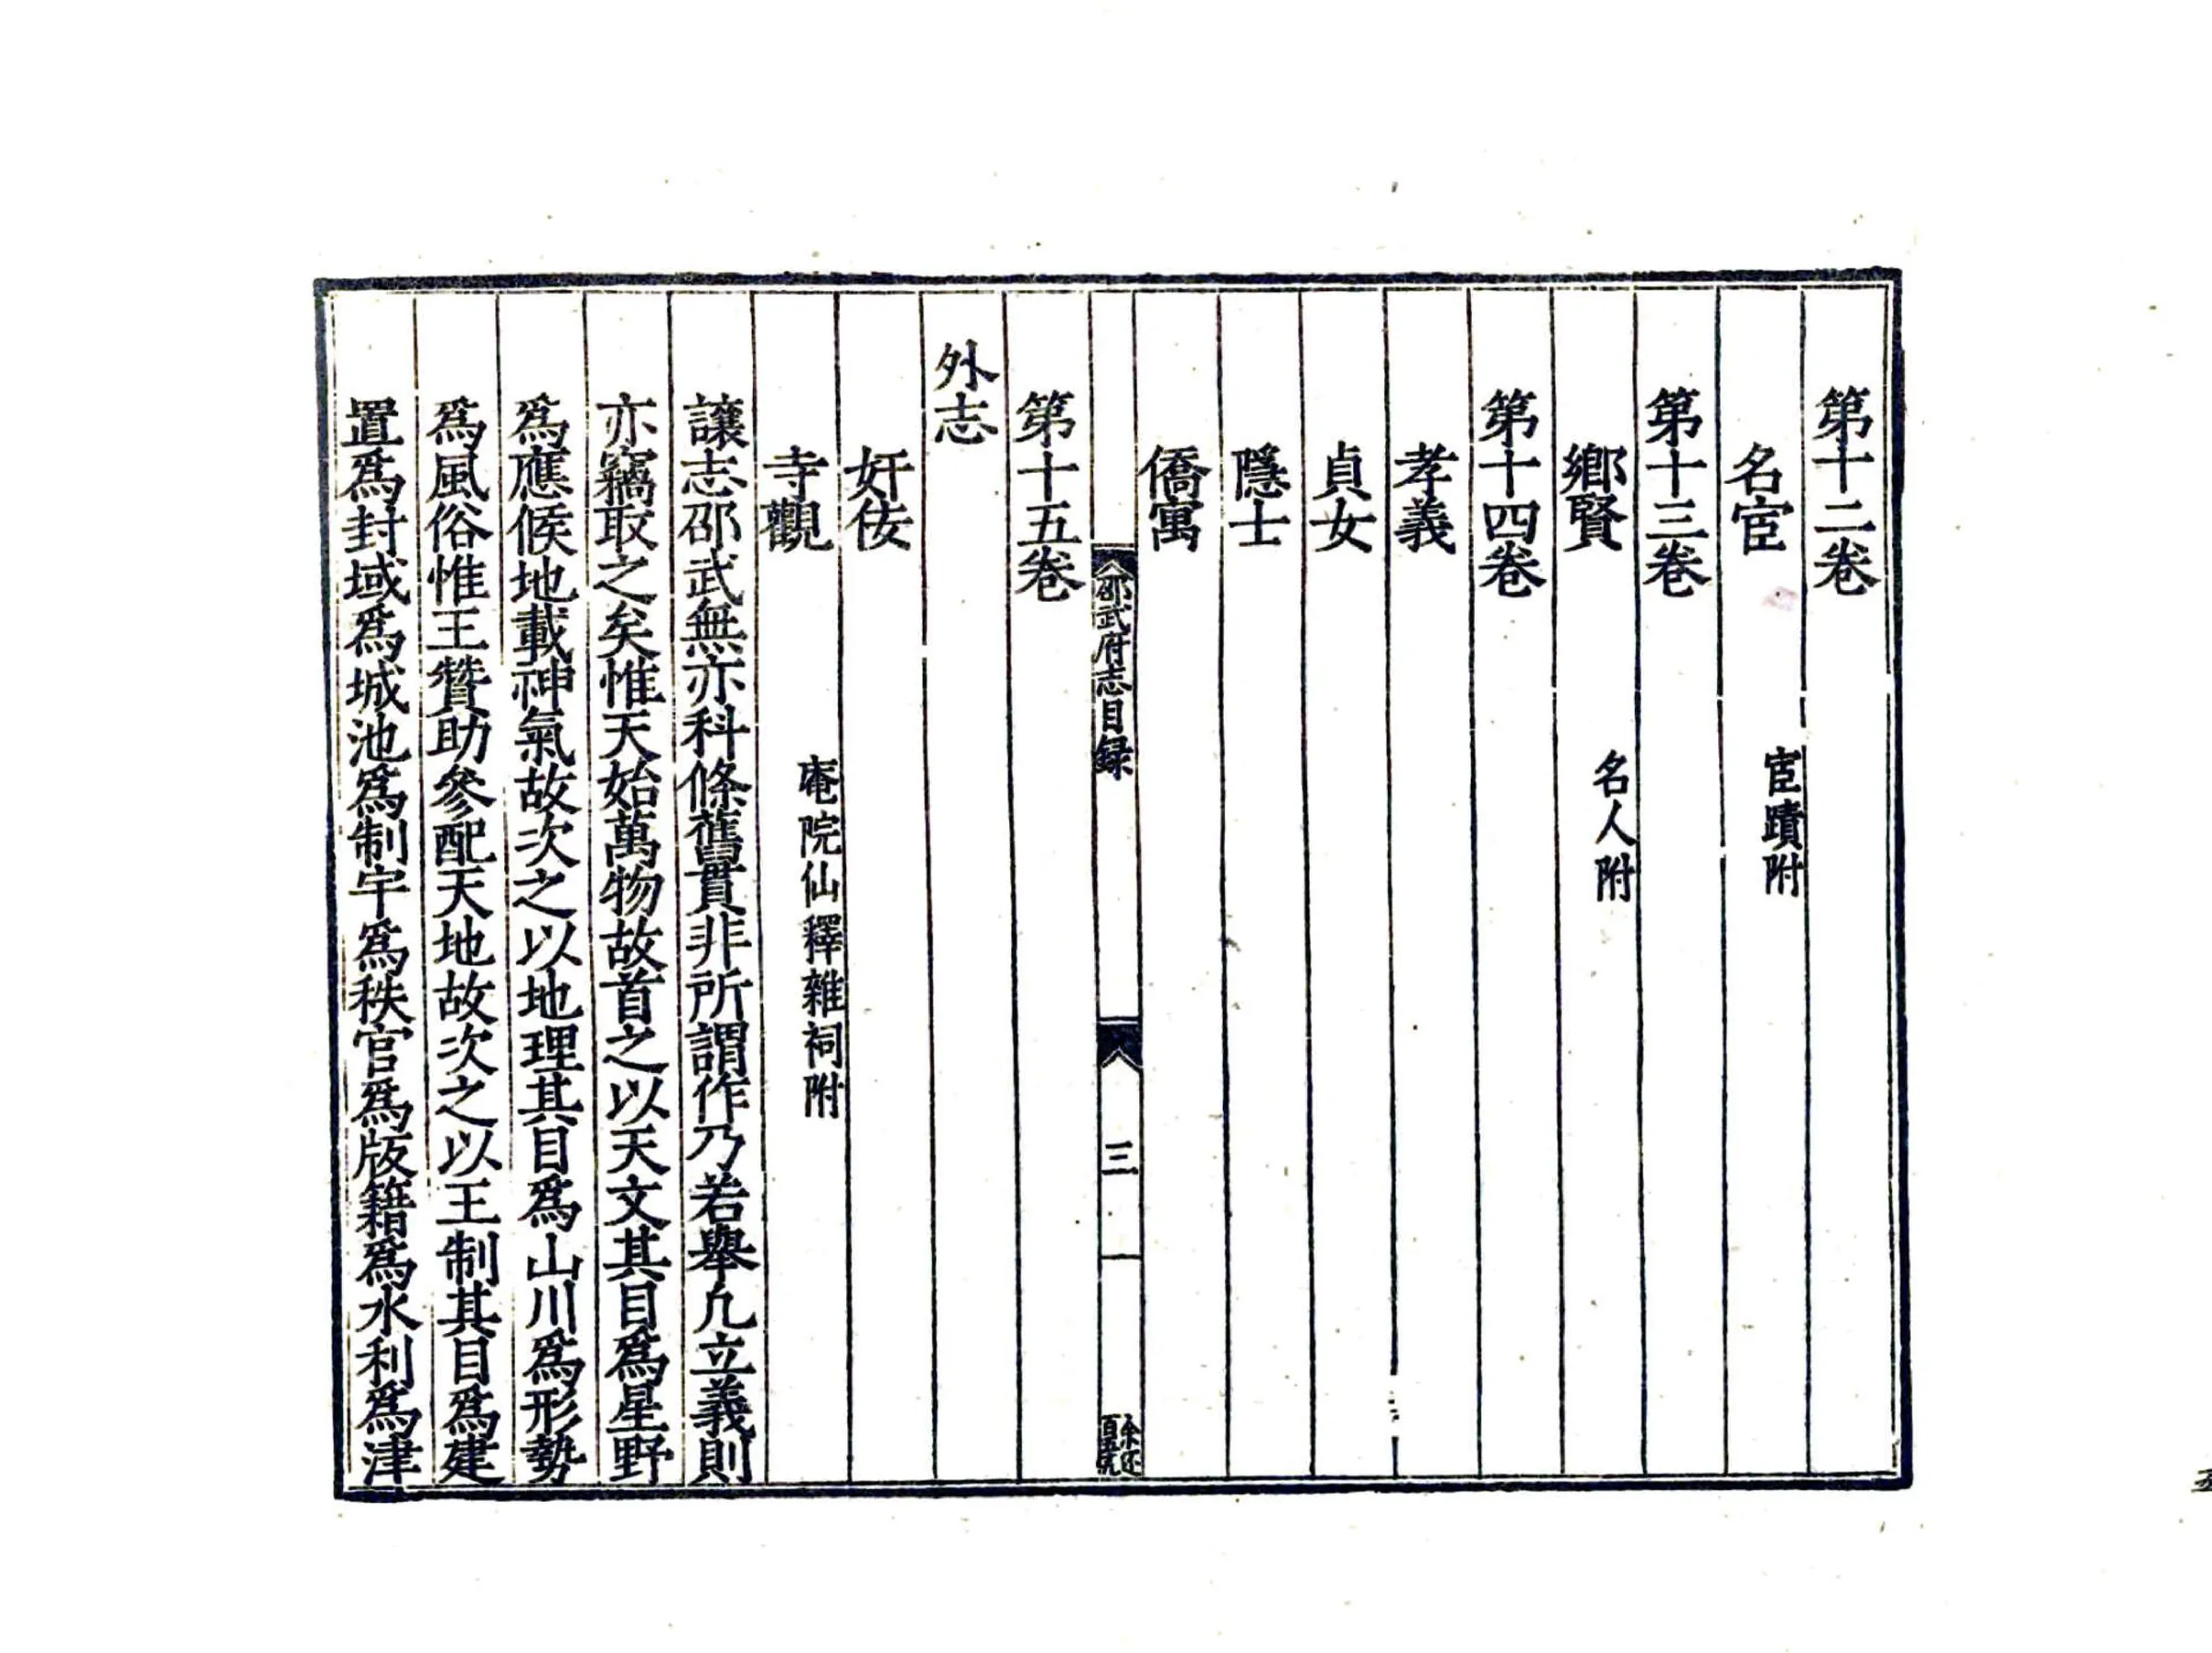 第十二卷
名宦　宦蹟附
第十三卷
鄉賢　名人附
第十四卷
孝義
貞女
隱士
僑寓
邵武府志目録　三
第十五卷
外志
奸佞
寺觀　庵院仙釋雜祠附
讓志邵武無亦科條舊貫非所謂作乃若舉凡立義則
亦竊取之矣惟天始萬物故首之以天文其目爲星野
爲應候地載神氣故次之以地理其目爲山川爲形勢
爲風俗惟王贊助參配天地故次之以王制其目爲建
置爲封域爲城池爲制宇爲秩官爲版籍爲水利爲津